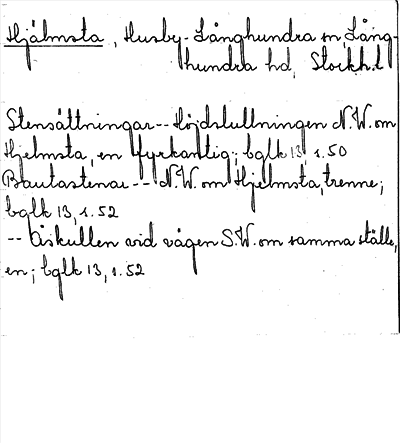 Hjälmsta, Husby-Långhundra sn, Lång-
hundra hd, Stockh.l
Stensättningar -- Höjdslullningen N.W. om
Hjelmsta, en fyrkantig; bglk 13, s. 50
Bautastenar -- N.W. om Hjelmsta, trenne;
bglk 13, s. 52
-- Åskullen vid vägen S.W. om samma ställe,
en; bglk 13, s. 52